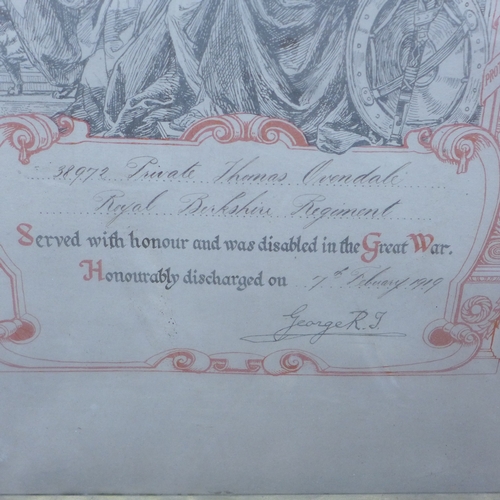 38972 Private Thomas Ovendale
Royal Berkshire Regiment
Served with honour and was disabled in the Great War.
Honourably discharged on February 1919
George R.I.